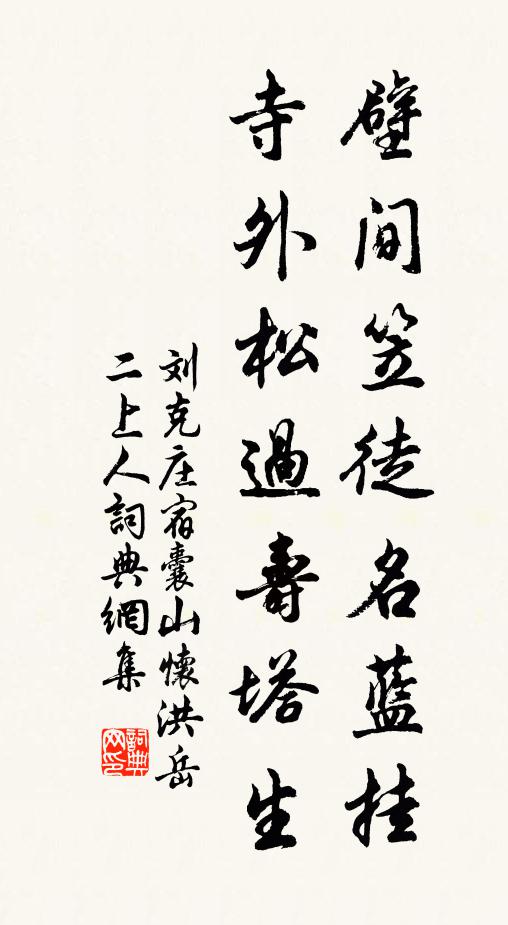 壁間笠徒名藍挂
寺外松過壽塔生
刘克庄宿囊山懷洪岳
二上人詞典網集
詞典
网印